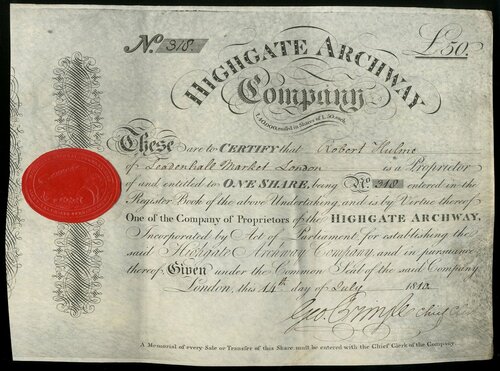 No. 318.
£50.
HIGHGATE ARCHWAY
Company
£40,000, raised in Shares of £.50 each.
These are to CERTIFY that Robert Hulme
of Leadenhall Market London is a Proprietor
of and entitled to ONE SHARE, being No 318 entered in the
Register Book of the above Undertaking, and is by Virtue thereof
One of the Company of Proprietors of the HIGHGATE ARCHWAY,
Incorporated by Act of Parliament for establishing the
said Highgate Archway Company, and in pursuance
thereof, Given under the Common Seal of the said Company
London, this 14th day of July 1812
Geo. Chief
A Memorial of every Sale or Transfer of this Share must be entered with the Chief Clerk of the Company.